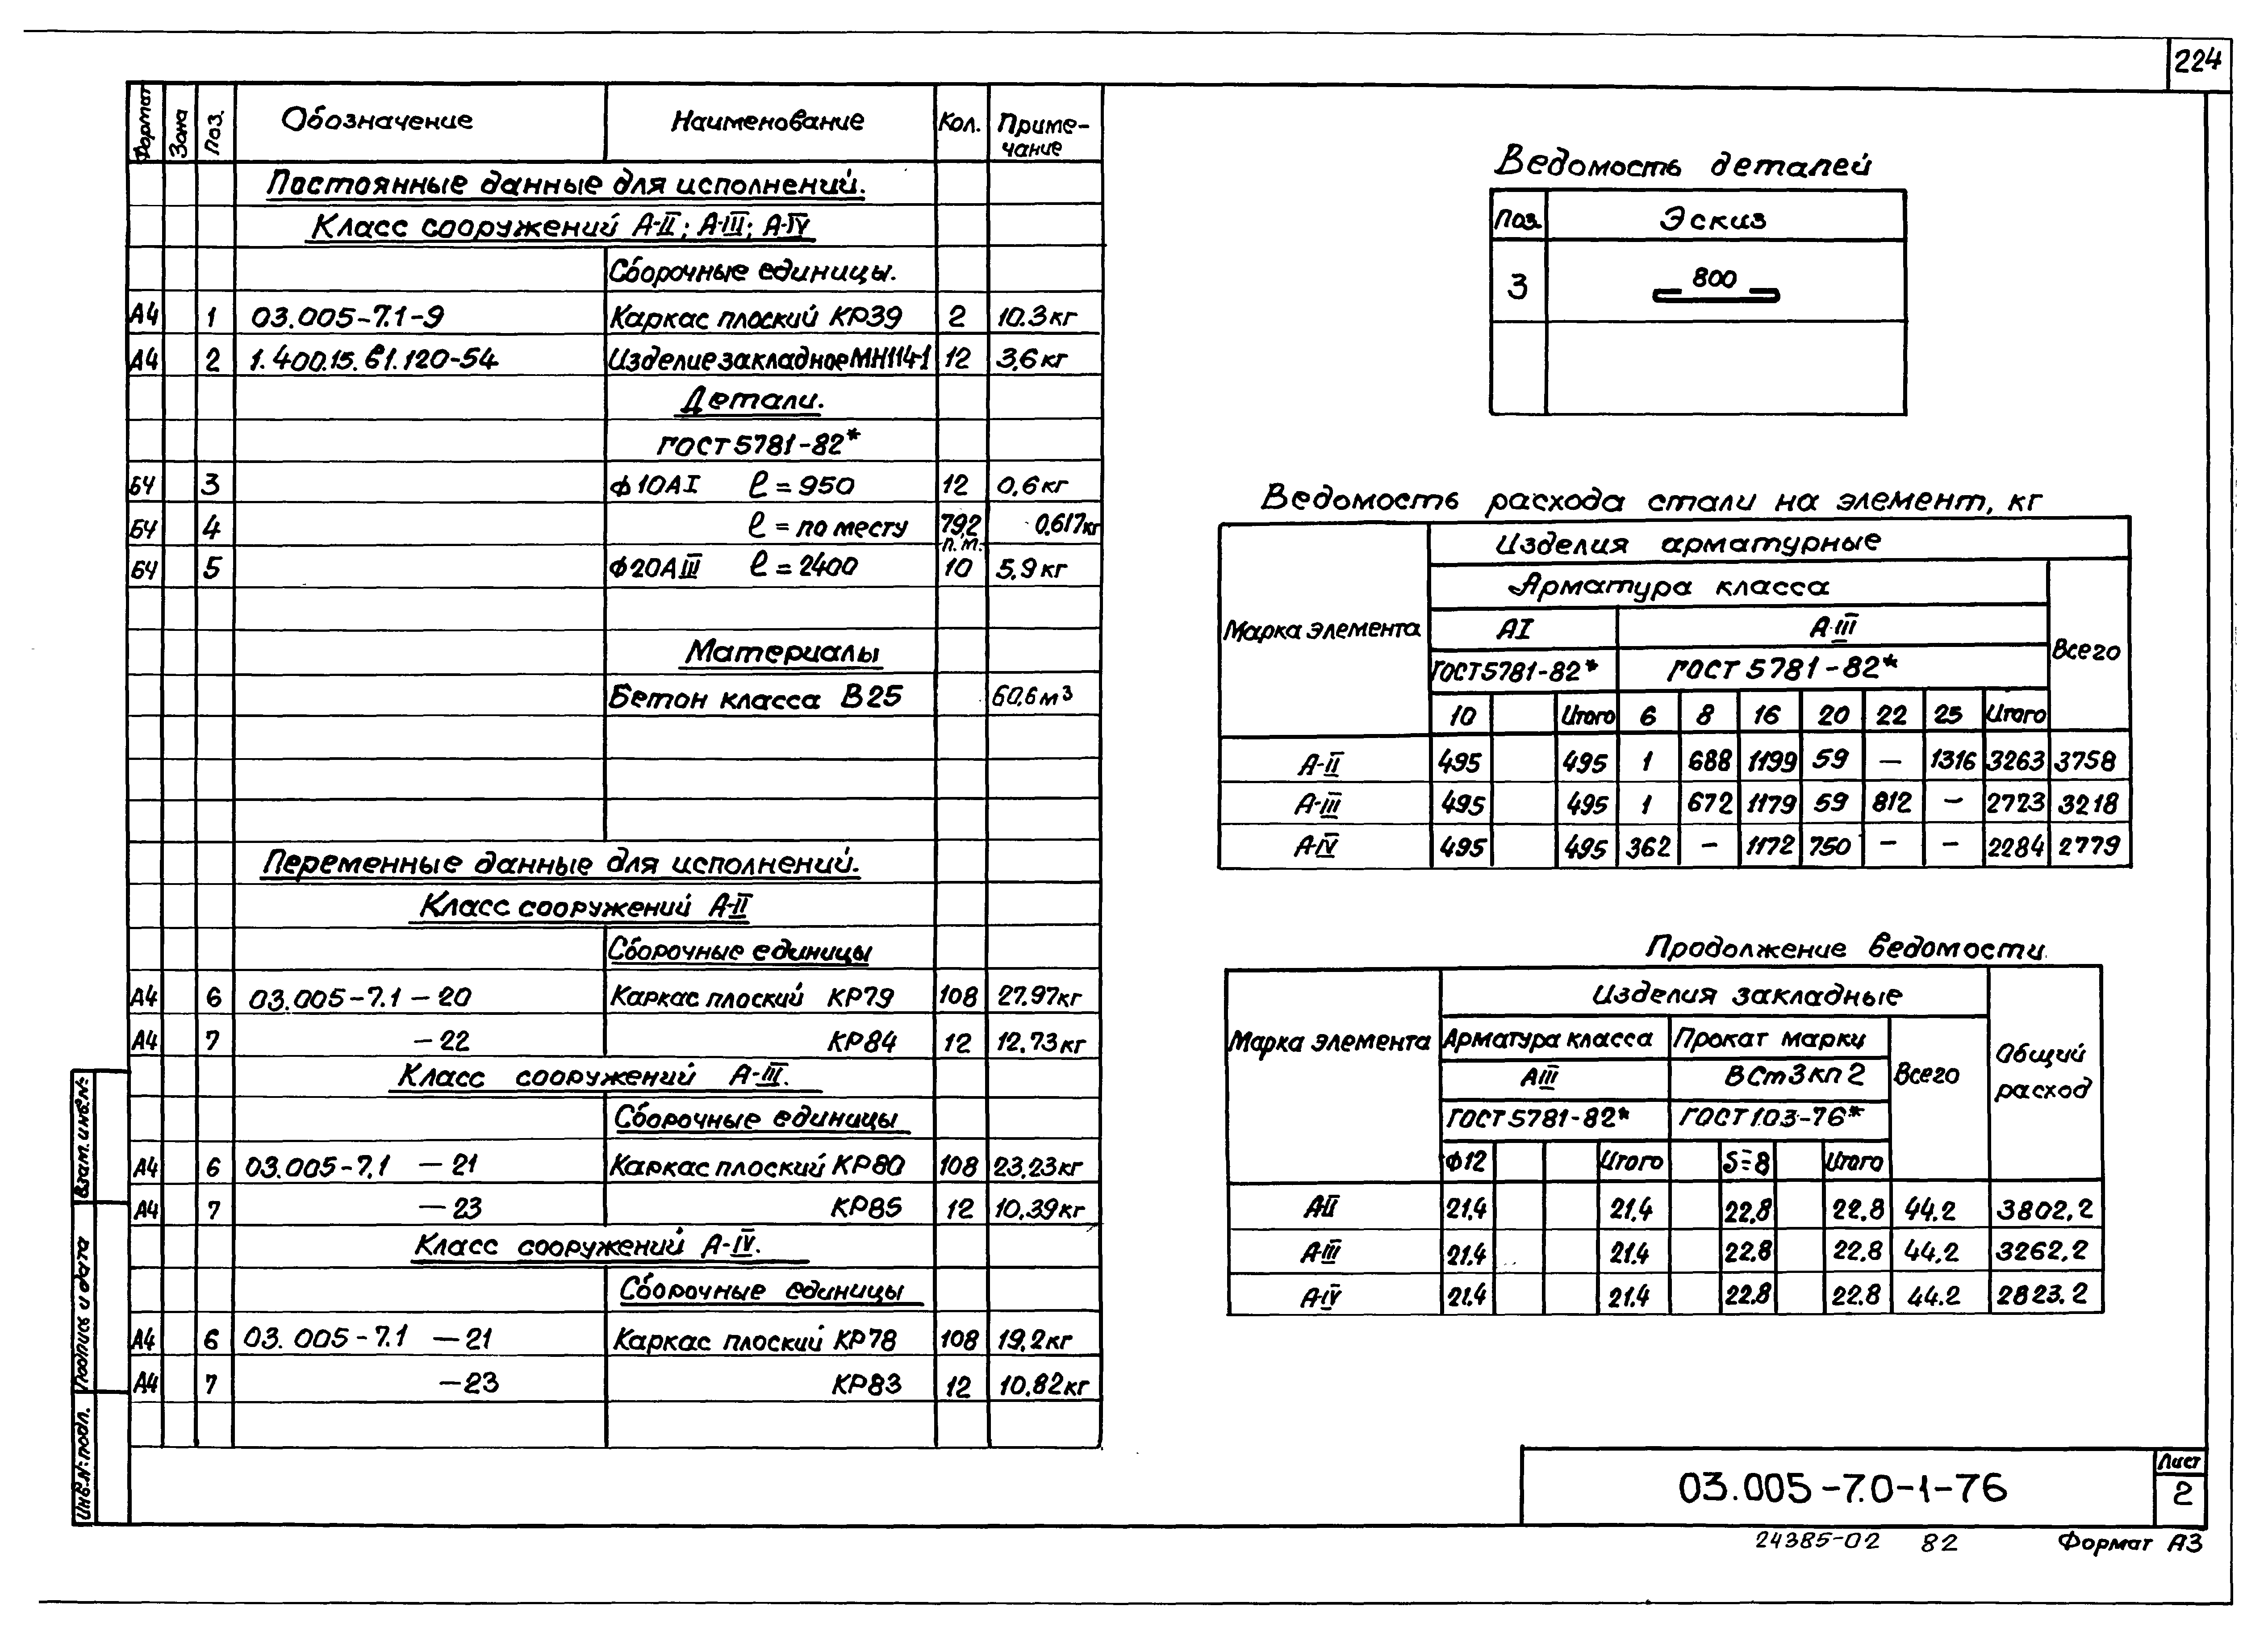 224
Формат Зона Поз. Обозначение Наименование Кол. Приме-
чание
Постоянные данные для исполнений.
Класс сооружений А-II; А-III; А-IV
Сборочные единицы.
А4 1 03.005-7.1-9 Каркас плоский КР39 2 10.3кг
А4 2 1.400.15.в1.120-54 Изделие закладное МН114-1 12 3,6кг
Детали.
ГОСТ 5781-82*
БЧ 3 Ф10АI ℓ=950 12 0,6кг
БЧ 4 ℓ=по месту 792 п.м. 0,617кг
БЧ 5 Ф20АIII ℓ=2400 10 5,9кг
Материалы
Бетон класса В25 60,6м³
Переменные данные для исполнений.
Класс сооружений А-II
Сборочные единицы
А4 6 03.005-7.1-20 Каркас плоский КР79 108 27.97кг
А4 7 -22 КР84 12 12.73кг
Класс сооружений А-III.
Сборочные единицы
А4 6 03.005-7.1 -21 Каркас плоский КР80 108 23,23кг
А4 7 -23 КР85 12 10.39кг
Класс сооружений А-IV.
Сборочные единицы
А4 6 03.005-7.1 -21 Каркас плоский КР78 108 19,2кг
А4 7 -23 КР83 12 10.82кг
Взам. инв.№
Подпись и дата
Инв.№ подл.
Ведомость деталей
Поз. Эскиз
3 800
Ведомость расхода стали на элемент, кг
Марка элемента Изделия арматурные
Арматура класса Всего
АI А-III
ГОСТ5781-82* ГОСТ 5781-82*
10 Итого 6 8 16 20 22 25 Итого
А-II 495 495 1 688 1199 59 — 1316 3263 3758
А-III 495 495 1 672 1179 59 812 — 2723 3218
А-IV 495 495 362 — 1172 750 — — 2284 2779
Продолжение ведомости.
Марка элемента Изделия закладные Общий расход
Арматура класса Прокат марки Всего
АIII ВСт3кп2
ГОСТ5781-82* ГОСТ103-76*
Ф12 Итого S=8 Итого
АII 21.4 21.4 22.8 22.8 44.2 3802,2
А-III 21.4 21.4 22.8 22.8 44.2 3262.2
А-IV 21.4 21.4 22.8 22.8 44.2 2823.2
03.005-7.0-1-76 Лист
2
24385-02 82 Формат А3